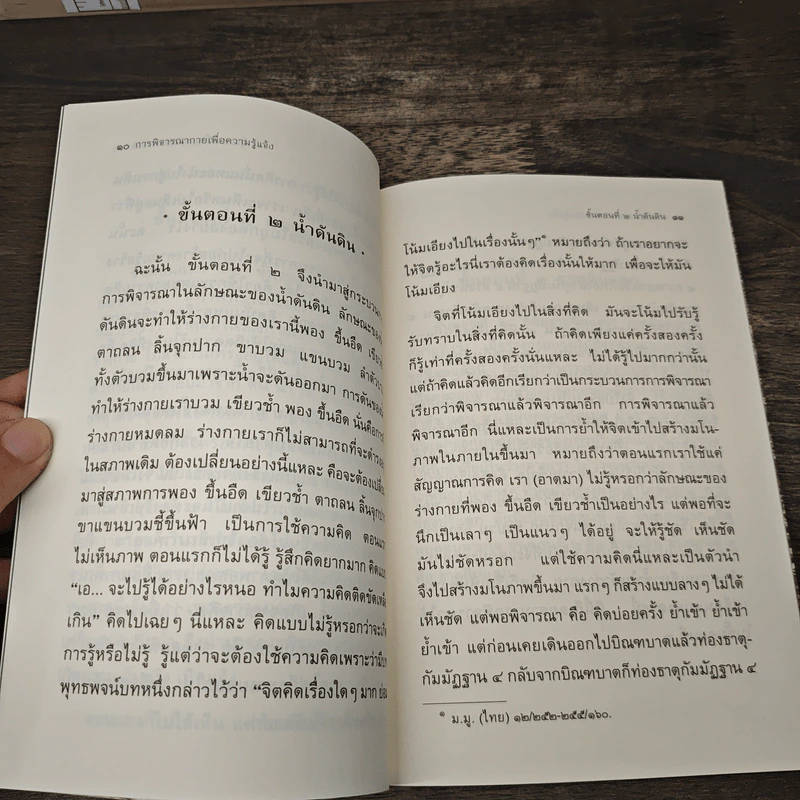 ๑๐ การพิจารณากายเพื่อความรู้แจ้ง
· ขั้นตอนที่ ๒ น้ำดันดิน ·
ฉะนั้น ขั้นตอนที่ ๒ จึงนำมาสู่กระบวนก
การพิจารณาในลักษณะของน้ำดันดิน ลักษณะของน้ำ
ดันดินจะทำให้ร่างกายของเรานี้พอง ขึ้นอืด เขียว
ตาถลน ลิ้นจุกปาก ขาบวม แขนบวม ลำตัวบวม
ทั้งตัวบวมขึ้นมาเพราะน้ำจะดันออกมา การดันของ
ทำให้ร่างกายเราบวม เขียวช้ำ พอง ขึ้นอืด นั่นคือการ
ร่างกายหมดลม ร่างกายเราก็ไม่สามารถที่จะดำรง
ในสภาพเดิม ต้องเปลี่ยนอย่างนี้แหละ คือจะต้องเปลี่ยน
มาสู่สภาพการพอง ขึ้นอืด เขียวช้ำ ตาถลน ลิ้นจุกปาก
ขาแขนบวมชี้ขึ้นฟ้า เป็นการใช้ความคิด ตอนแรก
ไม่เห็นภาพ ตอนแรกก็ไม่ได้รู้ รู้สึกคิดยากมาก คิดแบบ
“เอ... จะไปรู้ได้อย่างไรหนอ ทำไมความคิดติดขัดเหลือ
เกิน” คิดไปเฉยๆ นี่แหละ คิดแบบไม่รู้หรอกว่าจะเกิด
การรู้หรือไม่รู้ รู้แต่ว่าจะต้องใช้ความคิดเพราะว่ามี
พุทธพจน์บทหนึ่งกล่าวไว้ว่า “จิตคิดเรื่องใดๆ มาก ย่อม
ขั้นตอนที่ ๒ น้ำดันดิน ๑๑
โน้มเอียงไปในเรื่องนั้นๆ”๑ หมายถึงว่า ถ้าเราอยากจะ
ให้จิตรู้อะไรนี่เราต้องคิดเรื่องนั้นให้มาก เพื่อจะให้มัน
โน้มเอียง
จิตที่โน้มเอียงไปในสิ่งที่คิด มันจะโน้มไปรับรู้
รับทราบในสิ่งที่คิดนั้น ถ้าคิดเพียงแค่ครั้งสองครั้ง
ก็รู้เท่าที่ครั้งสองครั้งนั่นแหละ ไม่ได้รู้ไปมากกว่านั้น
แต่ถ้าคิดแล้วคิดอีกเรียกว่าเป็นกระบวนการการพิจารณา
เรียกว่าพิจารณาแล้วพิจารณาอีก การพิจารณาแล้ว
พิจารณาอีก นี่แหละเป็นการย้ำให้จิตเข้าไปสร้างมโน-
ภาพในภายในขึ้นมา หมายถึงว่าตอนแรกเราใช้แค่
สัญญาณการคิด เรา (อาตมา) ไม่รู้หรอกว่าลักษณะของ
ร่างกายที่พอง ขึ้นอืด เขียวช้ำเป็นอย่างไร แต่พอที่จะ
นึกเป็นเลาๆ เป็นแนวๆ ได้อยู่ จะให้รู้ชัด เห็นชัด
มันไม่ชัดหรอก แต่ใช้ความคิดนี่แหละเป็นตัวนำ
จึงไปสร้างมโนภาพขึ้นมา แรกๆ ก็สร้างแบบลางๆ ไม่ได้
เห็นชัด แต่พอพิจารณา คือ คิดบ่อยครั้ง ย้ำเข้า ย้ำเข้า
ย้ำเข้า แต่ก่อนเคยเดินออกไปบิณฑบาตแล้วท่องธาตุ-
กัมมัฏฐาน ๔ กลับจากบิณฑบาตก็ท่องธาตุกัมมัฏฐาน ๔
๑ ม.มู. (ไทย) ๑๒/๒๕๒-๒๕๕/๑๖๐.